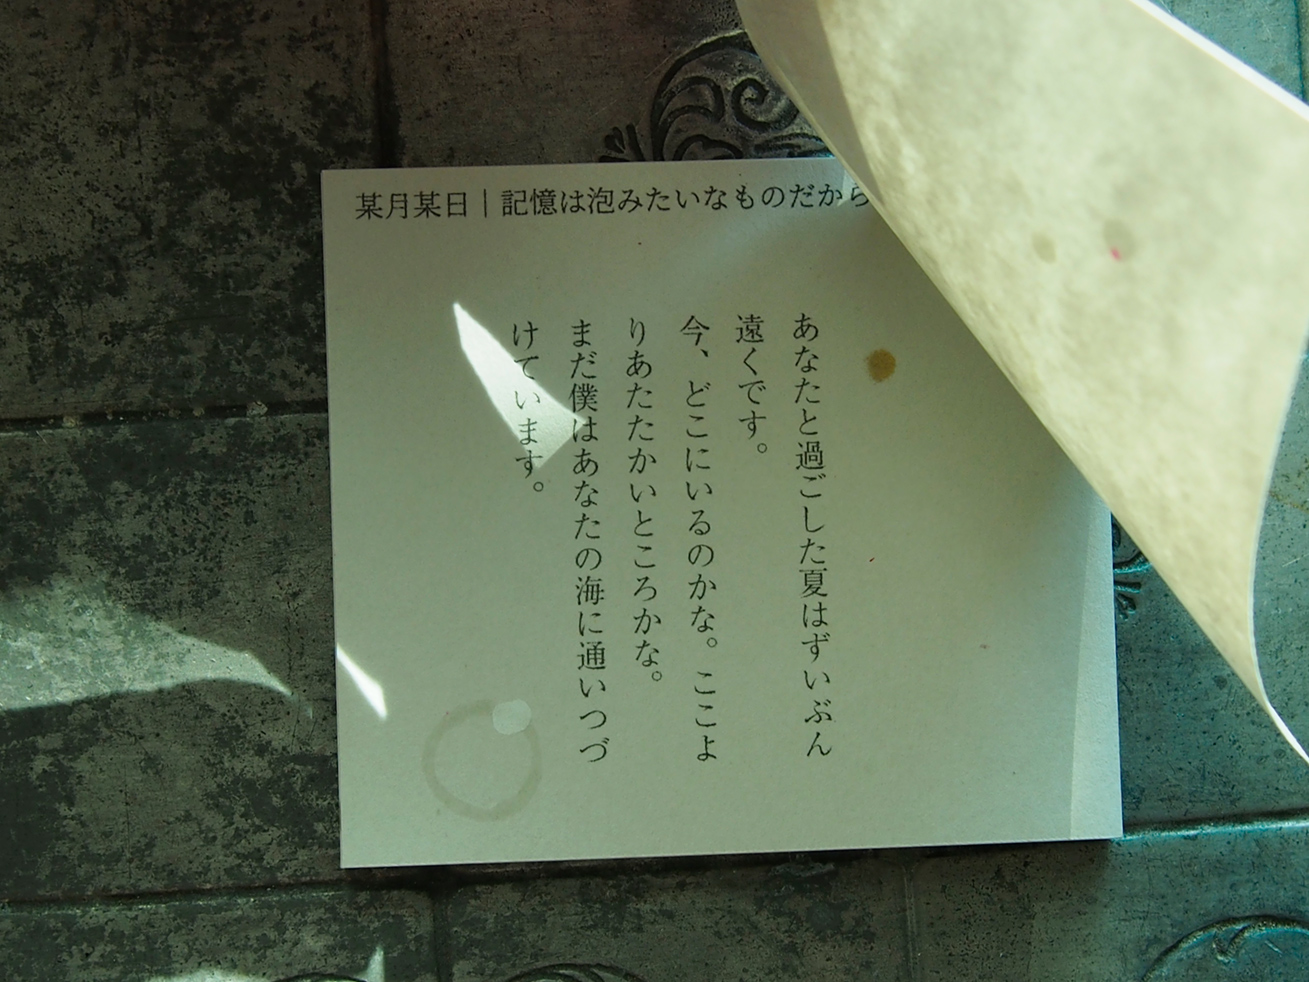 某月某日｜記憶は泡みたいなものだから
あなたと過ごした夏はずいぶん
遠くです。
今、どこにいるのかな。ここよ
りあたたかいところかな。
まだ僕はあなたの海に通いつづ
けています。